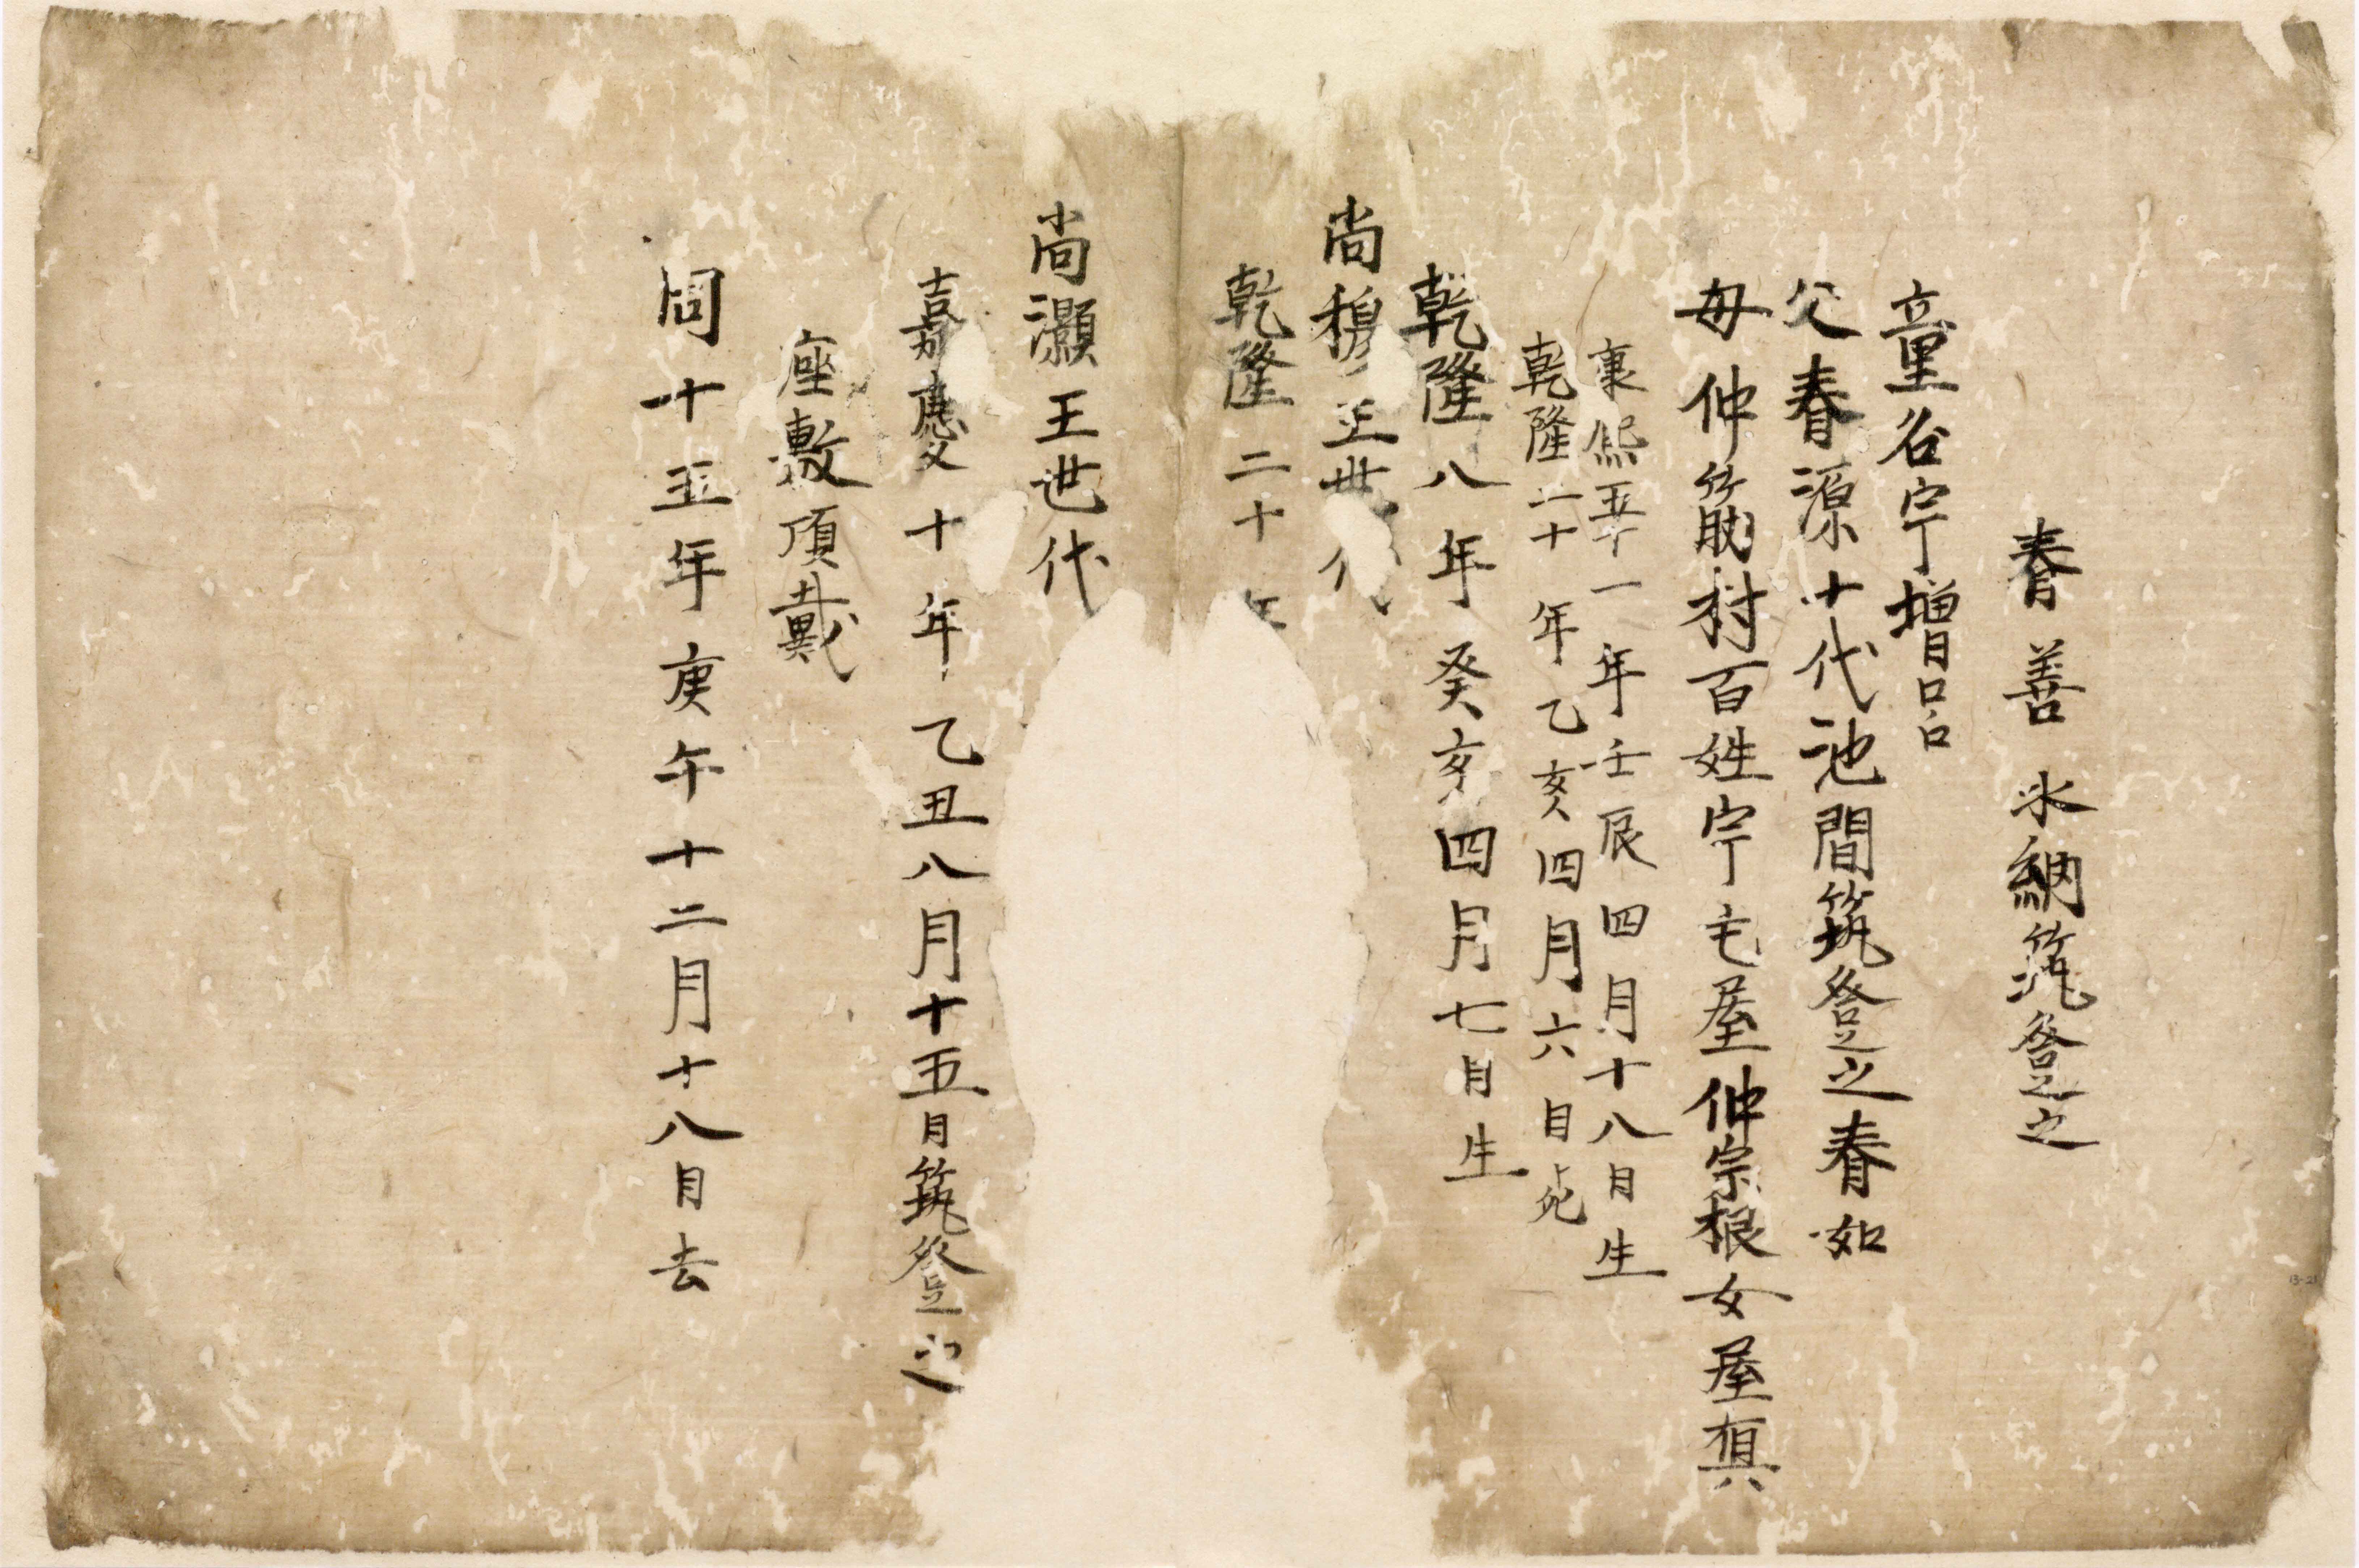 春善 氷納筑登之
童名宇増呂
父春源十代池間筑登之春如
母仲筋村百姓宇毛屋仲宗根女屋真
康熙五十一年壬辰四月十八日生
乾隆二十年乙亥四月六日死
乾隆八年癸亥四月七日生
尚穆王世代
乾隆二十年
尚灝王世代
嘉慶十年乙丑八月十五日筑登之
座敷頂戴
同十五年庚午十二月十八日去
13-21